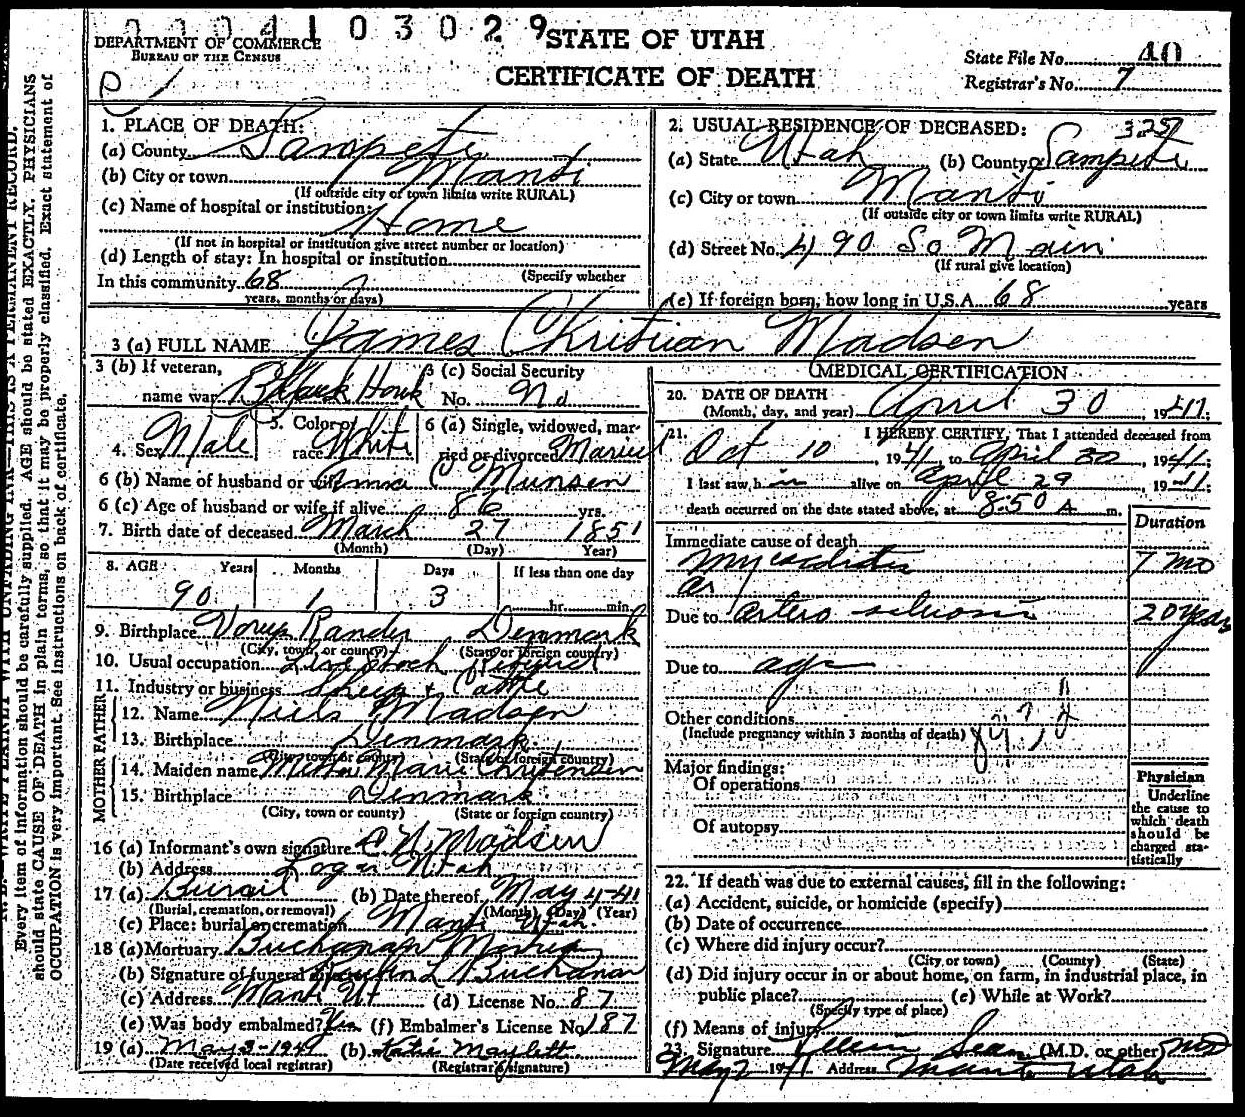 00041 0 3 0 2 9
DEPARTMENT OF COMMERCE
BUREAU OF THE CENSUS
STATE OF UTAH
CERTIFICATE OF DEATH
State File No. 40
Registrar's No. 7
Every item of information should be carefully supplied. AGE should be stated EXACTLY. PHYSICIANS
should state CAUSE OF DEATH in plain terms, so that it may be properly classified. Exact statement of
OCCUPATION is very important. See instructions on back of certificate.
1. PLACE OF DEATH:
(a) County Sanpete
(b) City or town Manti
(If outside city or town limits write RURAL)
(c) Name of hospital or institution:
Home
(If not in hospital or institution give street number or location)
(d) Length of stay: In hospital or institution
(Specify whether
In this community 68
years, months or days)
2. USUAL RESIDENCE OF DECEASED:
(a) State Utah (b) County Sanpete
(c) City or town Manti
(If outside city or town limits write RURAL)
(d) Street No. 490 So Main
(If rural give location)
(e) If foreign born, how long in U.S.A. 68 years
3 (a) FULL NAME James Christian Madsen
3 (b) If veteran,
name war Black Hawk
3 (c) Social Security
No. No
4. Sex Male
5. Color or
race White
6 (a) Single, widowed, mar-
ried or divorced Married
6 (b) Name of husband or wife Anna C Munsen
6 (c) Age of husband or wife if alive 86 yrs.
7. Birth date of deceased March 27 1851
(Month) (Day) Year)
8. AGE Years Months Days If less than one day
90 1 3 hr. min.
9. Birthplace Randers Denmark
(City, town, or county) (State or foreign country)
10. Usual occupation Livestock Retired
11. Industry or business Sheep & Cattle
FATHER
12. Name Niels Madsen
13. Birthplace Denmark
(City, town or county) (State or foreign country)
MOTHER
14. Maiden name Marie Christensen
15. Birthplace Denmark
(City, town or county) (State or foreign country)
16 (a) Informant's own signature C N Madsen
(b) Address Logan Utah
17 (a) Burial (b) Date thereof May 4-41
(Burial, cremation, or removal) (Month) (Day) (Year)
(c) Place: burial or cremation Manti Utah
18 (a) Mortuary Buchanan
(b) Signature of funeral director L Buchanan
(c) Address Manti Ut (d) License No. 87
(e) Was body embalmed? Yes (f) Embalmer's License No. 187
19 (a) May 3-1941 (b) Katie Maylett
(Date received local registrar) (Registrar's signature)
MEDICAL CERTIFICATION
20. DATE OF DEATH
(Month, day, and year) April 30, 1941.
21. I HEREBY CERTIFY, That I attended deceased from
Oct 10, 1941, to April 30, 1941.
I last saw him alive on April 29, 1941.
death occurred on the date stated above, at 8:50 A m.
Duration
Immediate cause of death
Myocarditis 7 mo
Due to artero sclerosis 20 years
Due to age
Other conditions
(Include pregnancy within 3 months of death)
Major findings:
Of operations
Of autopsy
Physician
Underline
the cause to
which death
should be
charged sta-
tistically
22. If death was due to external causes, fill in the following:
(a) Accident, suicide, or homicide (specify)
(b) Date of occurrence
(c) Where did injury occur?
(City or town) (County) (State)
(d) Did injury occur in or about home, on farm, in industrial place, in
public place? (e) While at Work?
(Specify type of place)
(f) Means of injury
23. Signature Sears (M.D. or other) MD
May 2 1941 Address Manti Utah